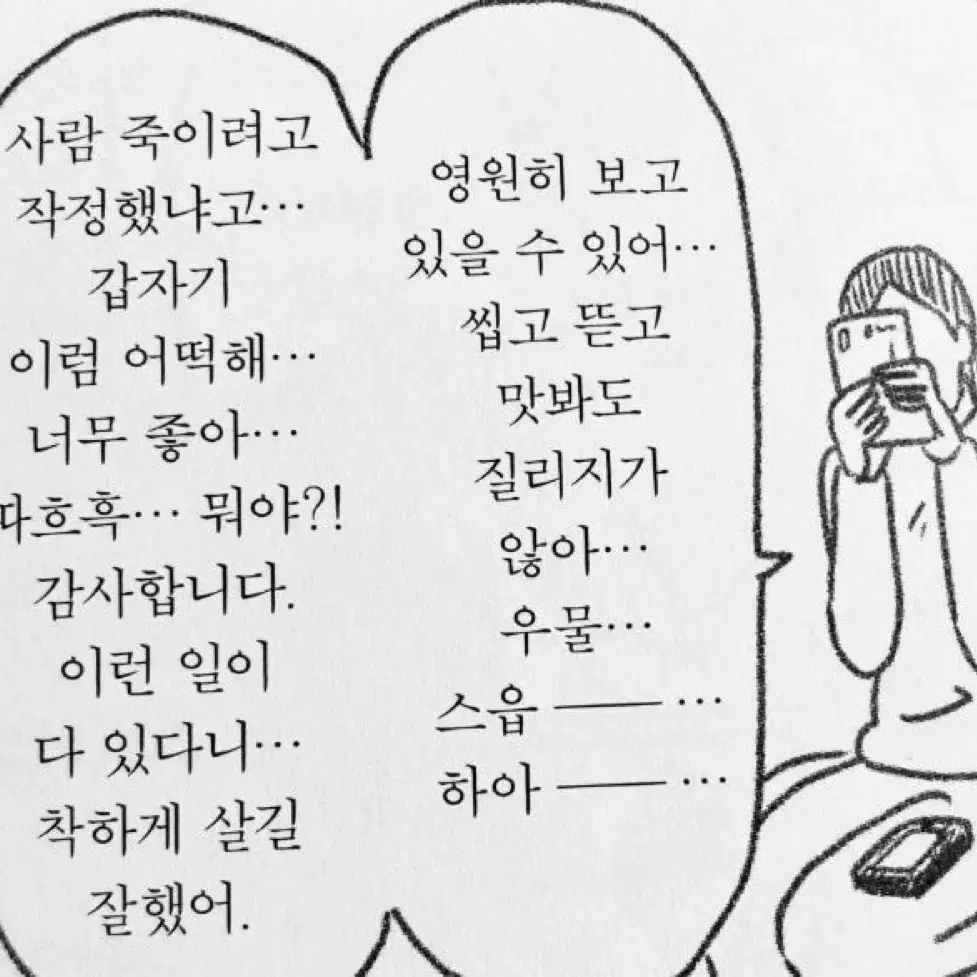 사람 죽이려고
작정했냐고…
갑자기
이럼 어떡해…
너무 좋아…
따흐흑… 뭐야?!
감사합니다.
이런 일이
다 있다니…
착하게 살길
잘했어.
영원히 보고
있을 수 있어…
씹고 뜯고
맛봐도
질리지가
않아…
우물…
스읍 ── …
하아 ── …